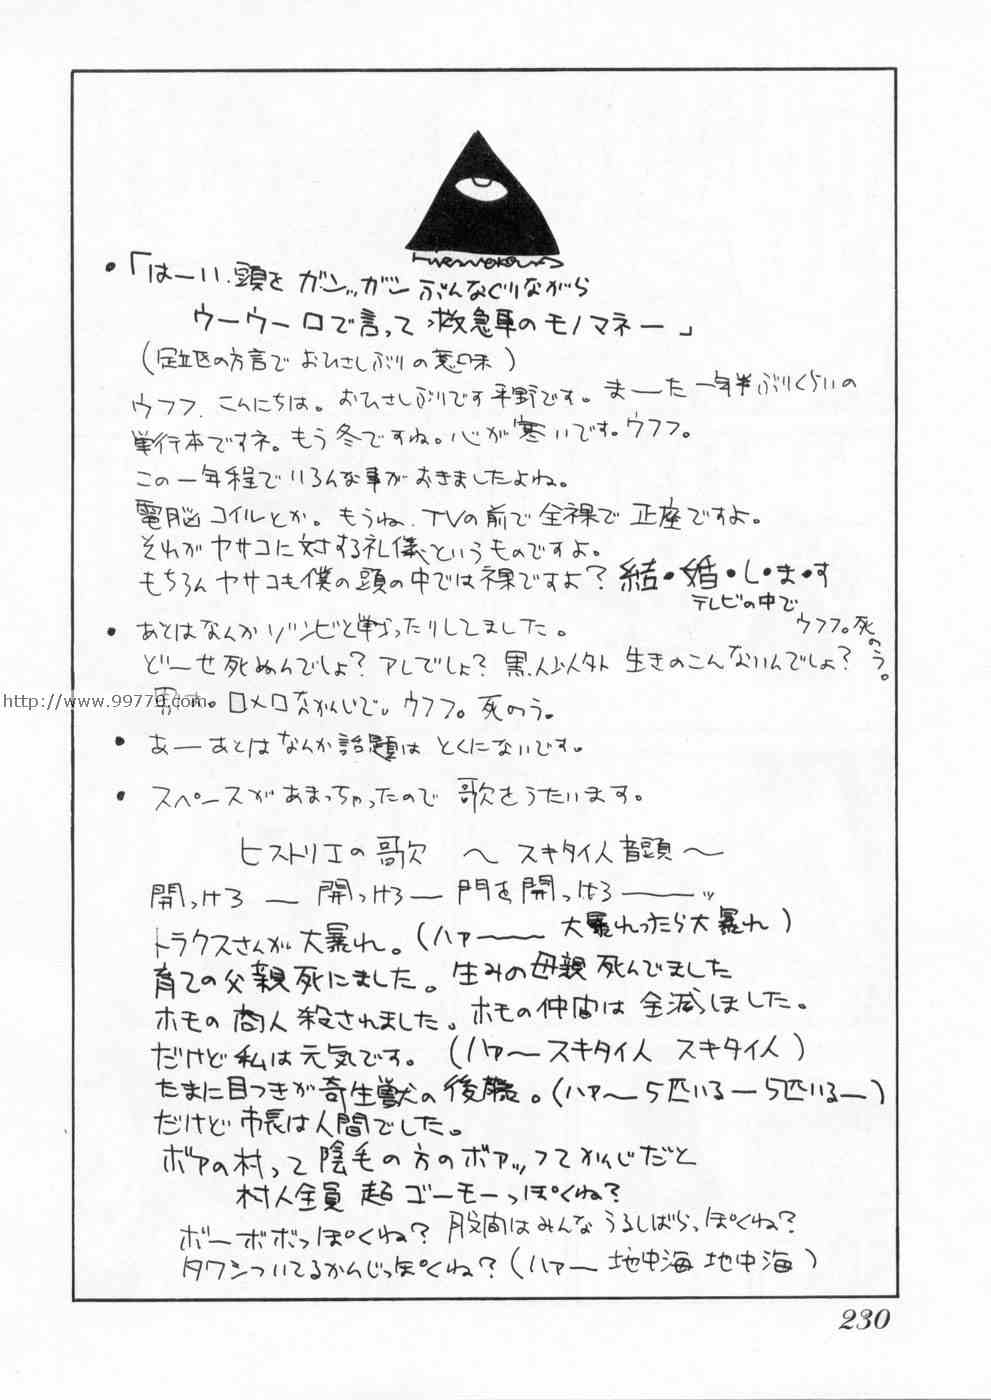 ・「はーい.頭をガンッガンぶんなぐりながら
ウーウー口で言って救急車のモノマネー」
(足立区の方言でおひさしぶりの意味)
ウフフ.こんにちは。おひさしぶりです平野です。まーた一年半ぶりくらいの
単行本ですネ。もう冬ですね。心が寒いです。ウフフ。
この一年程でいろんな事がおきましたよね。
電脳コイルとか。もうね.TVの前で全裸で正座ですよ。
それがヤサコに対する礼儀というものですよ。
もちろんヤサコも僕の頭の中では裸ですよ?結・婚・し・ま・す
テレビの中で
・あとはなんかゾンビと戦ったりしてました。
ウフフ。死のう。
どーせ死ぬんでしょ?アレでしょ?黒人以外生きのこんないんでしょ?
http://www.99770.com
。ロメロなかんじで。ウフフ。死のう。
・あーあとはなんか話題はとくにないです。
・スペースがあまっちゃったので歌をうたいます。
ヒストリエの歌 〜スキタイ人音頭〜
開っけろー 開っけろー門を開っけろーーッ
トラクスさんが大暴れ。(ハァーー大暴れったら大暴れ)
育ての父親死にました。生みの母親死んでました
ホモの商人殺されました。ホモの仲間は全滅しました。
だけど私は元気です。(ハァ〜スキタイ人 スキタイ人)
たまに目つきが奇生獣の後藤。(ハァ〜5匹いるー5匹いるー)
だけど市長は人間でした。
ボアの村って陰毛の方のボアッフてかんじだと
村人全員超ゴーモーっぽくね?
ボーボボっぽくね?股間はみんなうるしばらっぽくね?
タワシついてるかんじっぽくね?(ハァー地中海地中海)
230